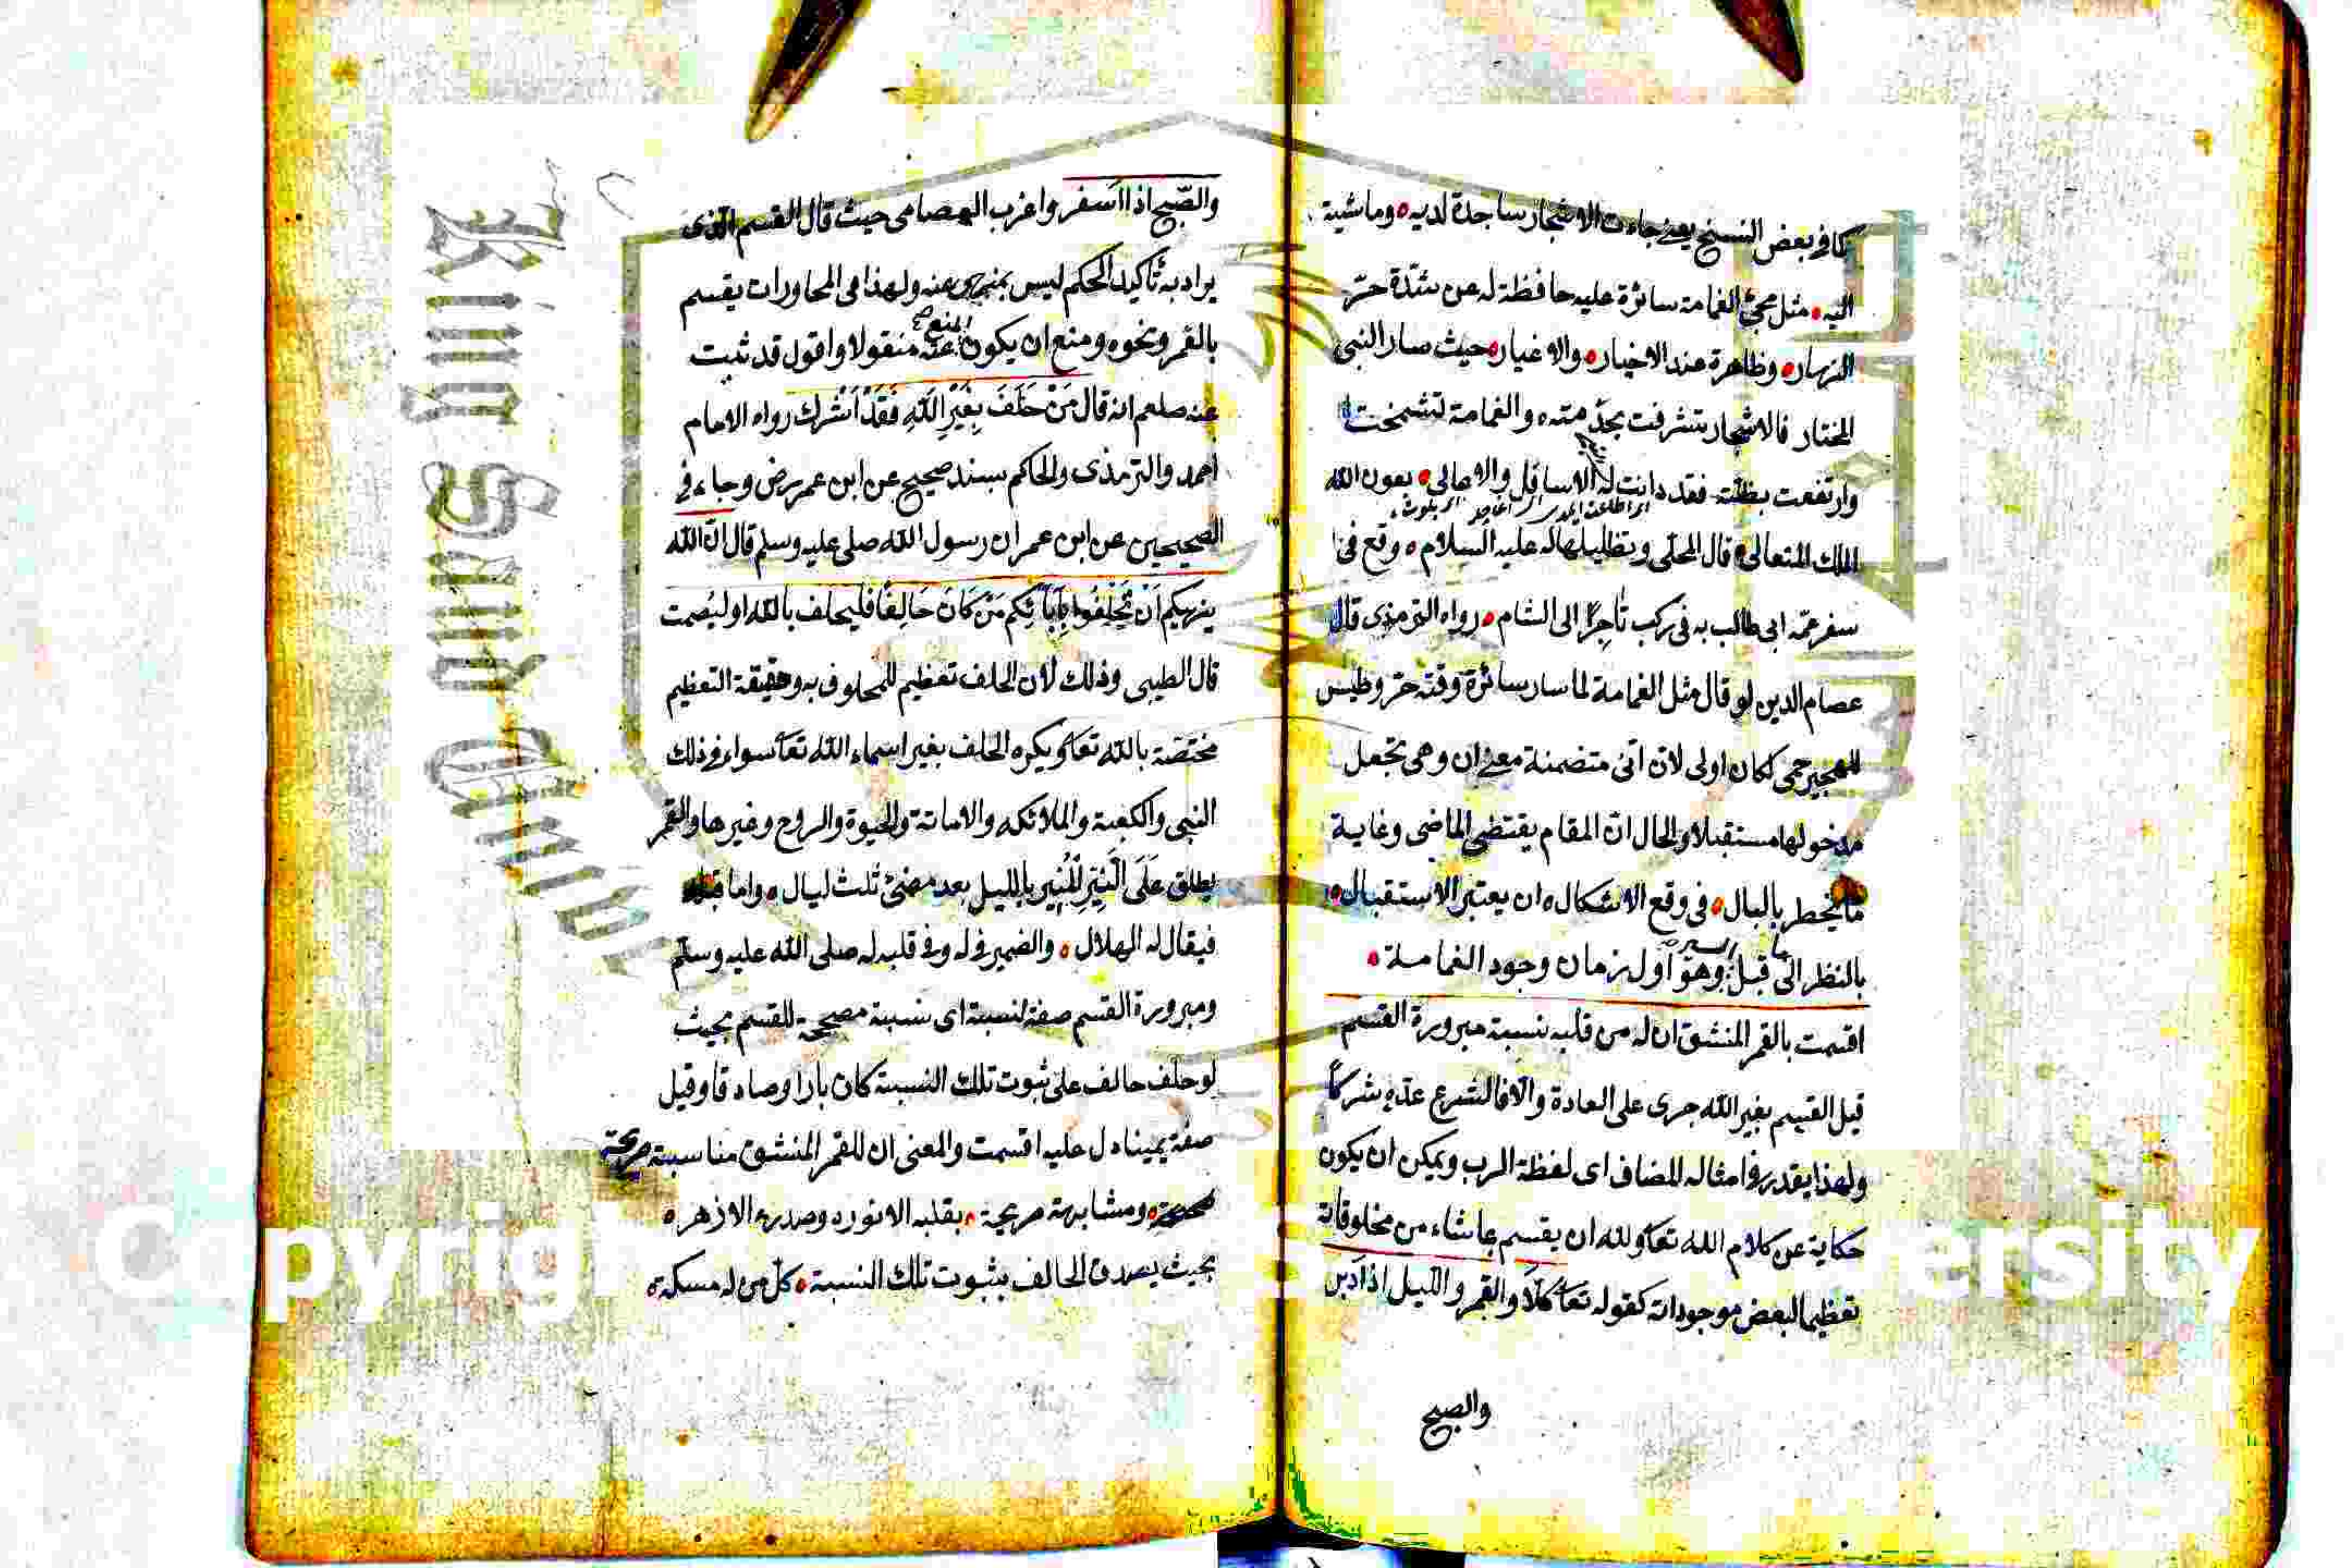 كما في بعض النسخ يعنى جاءت الاشجار ساجدة لديه وماشية
اليه مثل مجئ الغمامة سائرة عليه حافظة له عن شدّة حرّ
النهار وظاهرة عند الاخيار والاغيار حيث صار النبى
المختار فالاشجار تشرفت بخدمته والغمامة تشمخت
وارتفعت بظلته فقد دانت له الاسافل والاعالى بعون الله
الملك المتعالى قال المحلى وتظليلها له عليه السلام وقع فى
سفر عمّه ابى طالب به فى ركب تاجرًا الى الشام رواه الترمذى قال
عصام الدين لو قال مثل الغمامة لما سار سائرة وقته حر وطيس
للهجير حمى لكان اولى لان انى متضمنة معنى ان وهى تجعل
مدخولها مستقبلا والحال ان المقام يقتضى الماضى وغاية
ما يخطر بالبال فى وقع الاشكال ان يعتبر الاستقبال
بالنظر الى ما قبل السير وهو اول زمان وجود الغمامة
اقسمت بالقمر المنشق ان له من قلبه نسبة مبرورة القسم
قيل القسم بغير الله جرى على العادة والا فالشرع عدّه شركًا
ولهذا يقدر فى امثاله المضاف اى لفظة الرب ويمكن ان يكون
حكاية عن كلام الله تعا ولله ان يقسم بما شاء من مخلوقاته
تعظيما لبعض موجوداته كقوله تعا كلّا والقمر والليل اذ ادبر
والصبح
والصّبح اذا اسفر واغرب العصامى حيث قال القسم الذى
يراد به تأكيد الحكم ليس بمنهى عنه ولهذا فى المحاورات يقسم
بالقمر ونحوه ومنع ان يكون المنع عنه منقولا واقول قد ثبت
عنه صلعم انه قال مَنْ حَلَفَ بِغَيْرِ اللهِ فَقَدْ اَشْرك رواه الامام
احمد والترمذى والحاكم بسند صحيح عن ابن عمر رض وجاء فى
الصحيحين عن ابن عمر ان رسول الله صلى عليه وسلم قال انّ الله
ينهيكم اَنْ تَحْلِفُوا بِآبَائِكم مَنْ كَانَ حَالِفًا فليحلف بالله او ليصمت
قال الطيبى وذلك لان الحلف تعظيم للمحلوف به وحقيقة التعظيم
مختصّة بالله تعا ويكره الحلف بغير اسماء الله تعا سواء فى ذلك
النبى والكعبة والملائكه والامانة والحيوة والروح وغيرها والقمر
يطلق عَلَى النَّيِّرِ المُنِير بالليل بعد مضىّ ثلث ليال واما قبله
فيقال له الهلال والضمير فى له وفى قلبه له صلى الله عليه وسلم
ومبرورة القسم صفة لنسبة اى نسبة مصححة للقسم بحيث
لو حلف حالف على ثبوت تلك النسبة كان بارا وصادقا وقيل
صفة يمينا دل عليه اقسمت والمعنى ان للقمر المنشق مناسبة
صحيحة ومشابهة صريحة بقلبه الانور وصدره الازهر
بحيث يصدق الحالف بثبوت تلك النسبة كل من له مسكه
King Saud University
Copyrig ersity